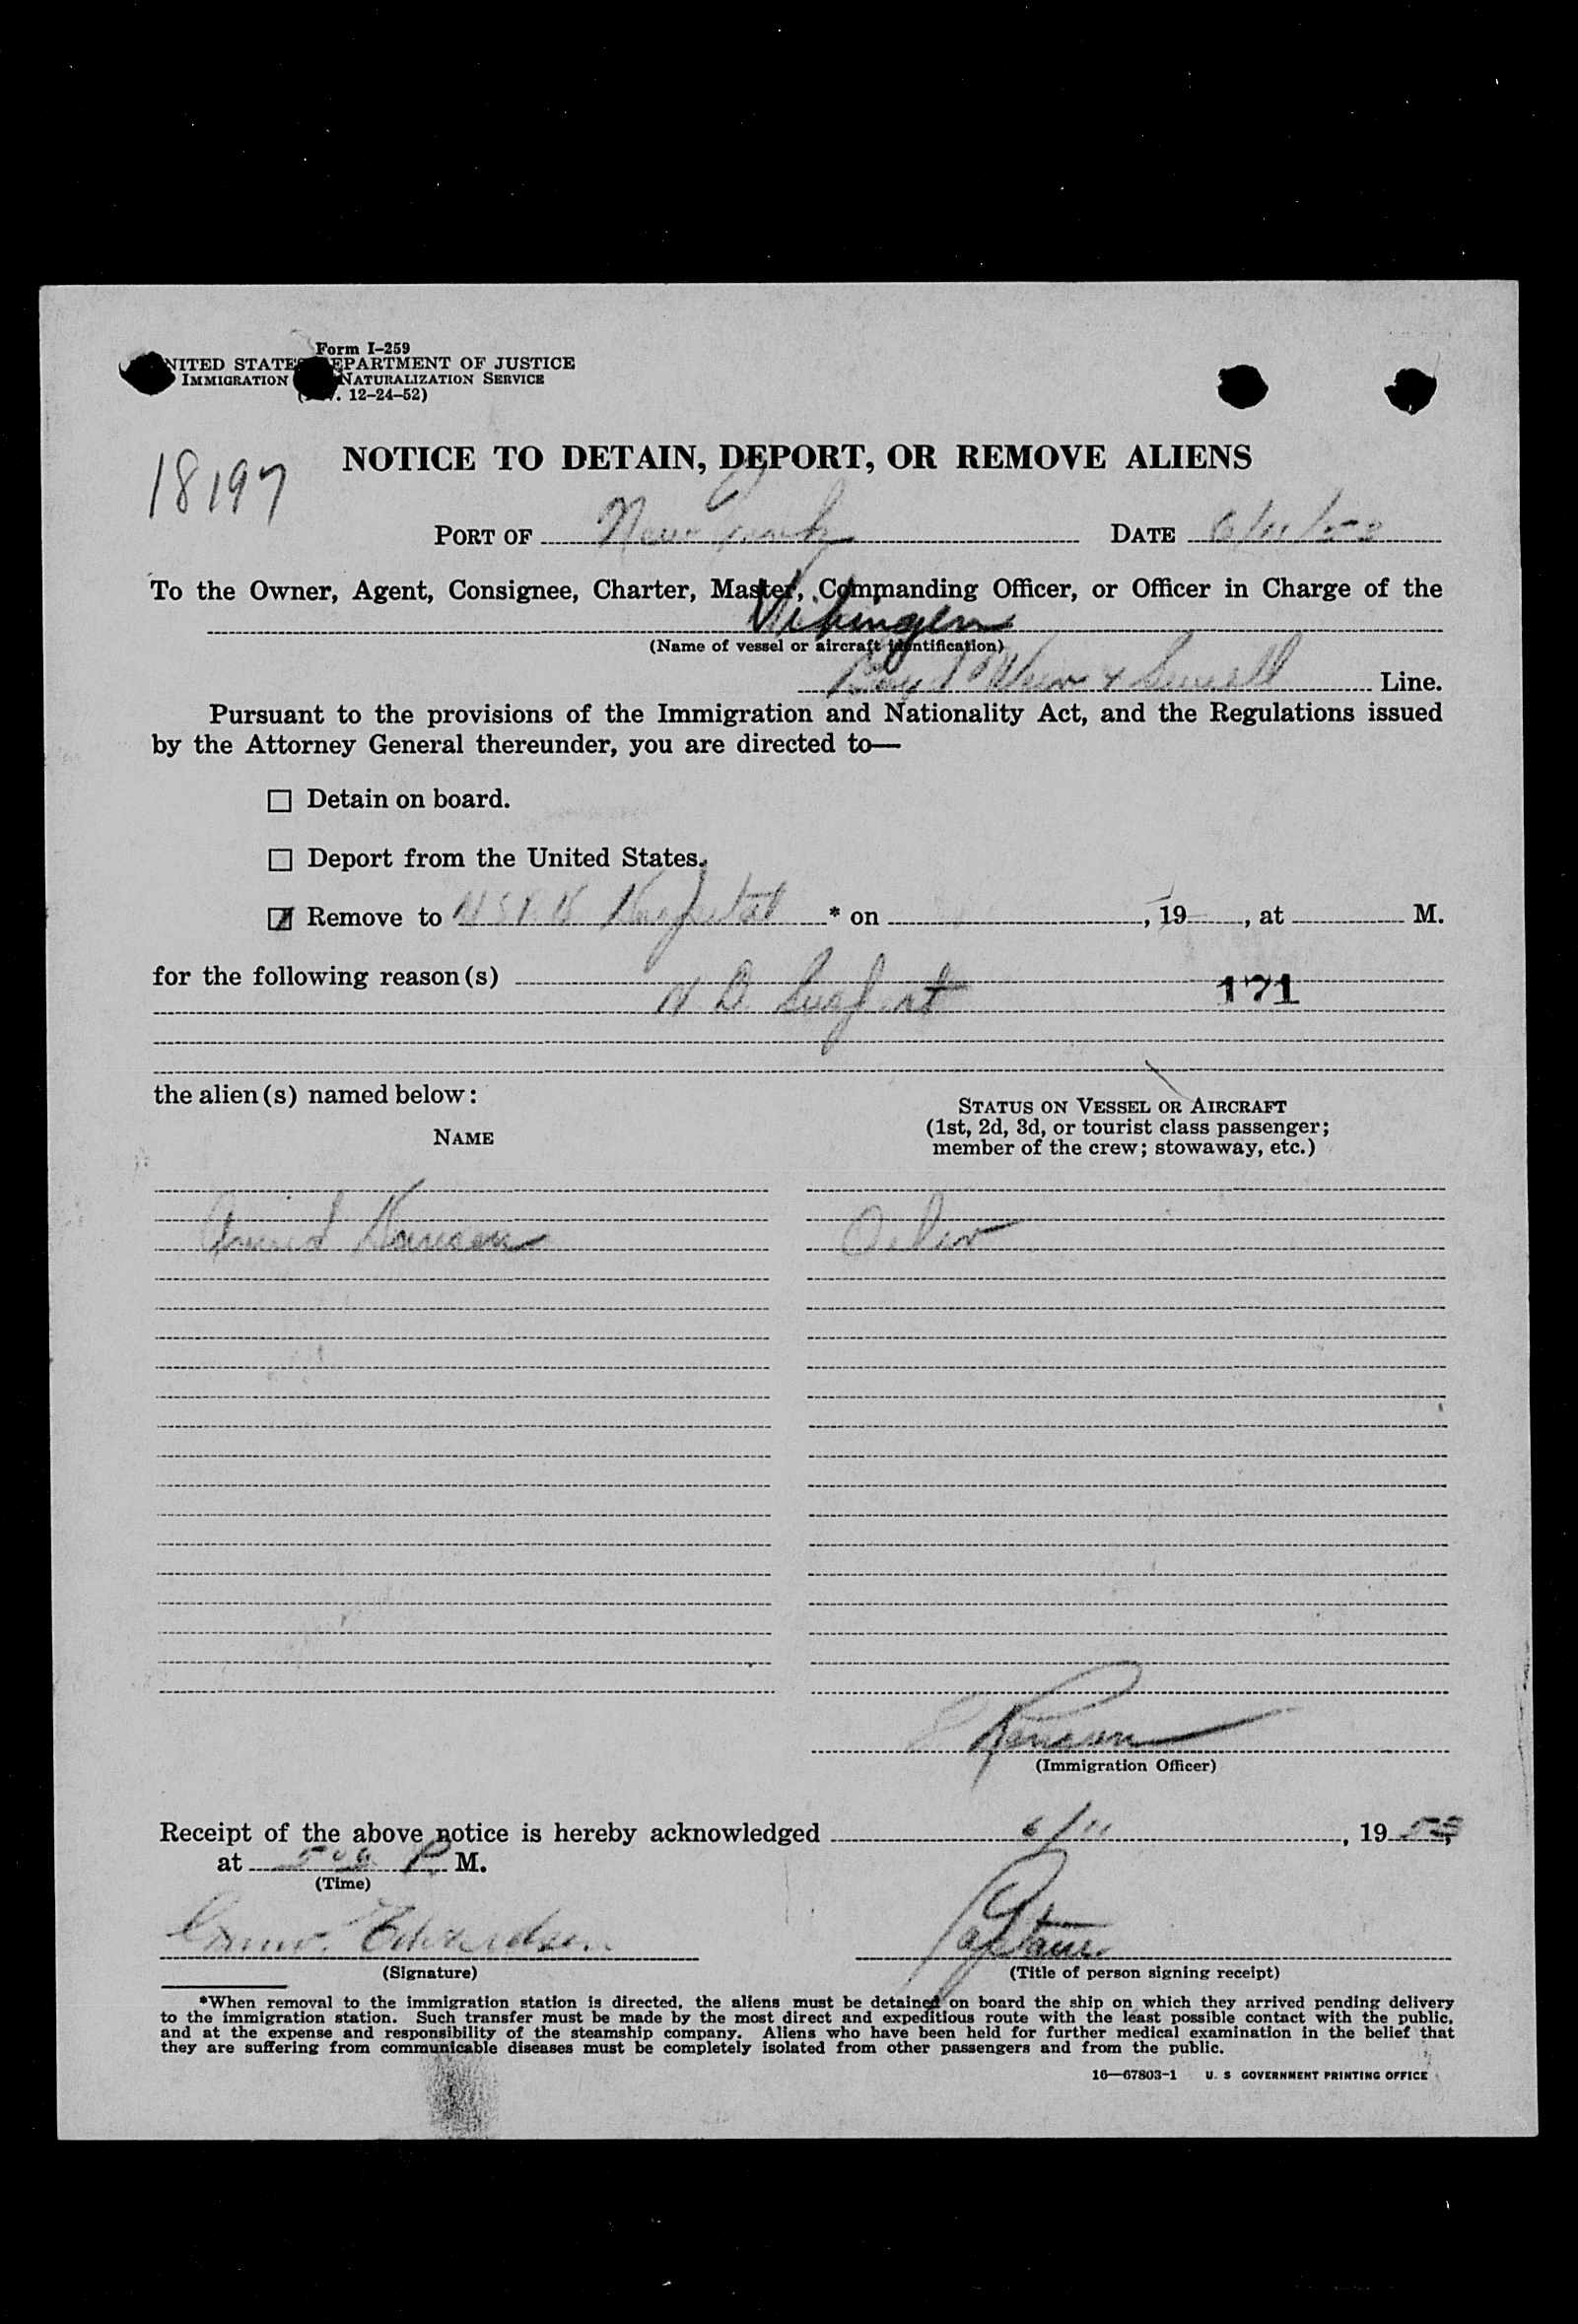 Form I-259
NITED STATES DEPARTMENT OF JUSTICE
IMMIGRATION NATURALIZATION SERVICE
. 12-24-52)
18197
NOTICE TO DETAIN, DEPORT, OR REMOVE ALIENS
PORT OF New York DATE 6/11/53
To the Owner, Agent, Consignee, Charter, Master, Commanding Officer, or Officer in Charge of the
Vikingen
(Name of vessel or aircraft identification)
Boyd Weir & Sewell Line.
Pursuant to the provisions of the Immigration and Nationality Act, and the Regulations issued
by the Attorney General thereunder, you are directed to—
☐ Detain on board.
☐ Deport from the United States.
☑ Remove to Hospital * on , 19 , at M.
for the following reason(s)
V.D. Suspect 171
the alien(s) named below:
STATUS ON VESSEL OR AIRCRAFT
(1st, 2d, 3d, or tourist class passenger;
member of the crew; stowaway, etc.)
NAME
Hansen Oiler
(Immigration Officer)
Receipt of the above notice is hereby acknowledged 6/11, 19 53,
at 5 P. M.
(Time)
Edvardsen Captain
(Signature) (Title of person signing receipt)
*When removal to the immigration station is directed, the aliens must be detained on board the ship on which they arrived pending delivery
to the immigration station. Such transfer must be made by the most direct and expeditious route with the least possible contact with the public,
and at the expense and responsibility of the steamship company. Aliens who have been held for further medical examination in the belief that
they are suffering from communicable diseases must be completely isolated from other passengers and from the public.
16—67803-1 U. S GOVERNMENT PRINTING OFFICE